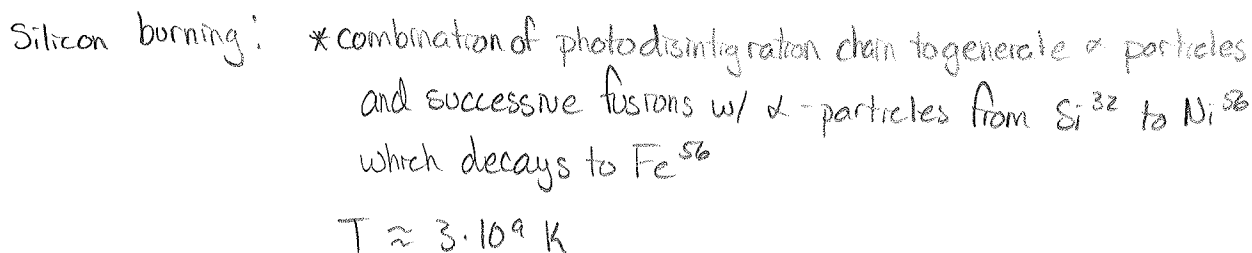 Silicon burning: * combination of photodisintigration chain to generate α particles
and successive fusions w/ α-particles from Si³² to Ni⁵⁶
which decays to Fe⁵⁶
T ≈ 3·10⁹ K